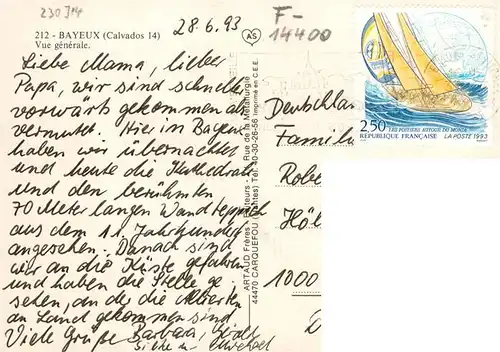 230 J14
28.6.93
F-
14400
212 - BAYEUX (Calvados 14)
Vue générale.
Liebe Mama, lieber
Papa, wir sind schneller
vorwärts gekommen als
vermutet. Hier in Bayeux
haben wir übernachtet
und heute die Kathedrale
und den berühmten
70 Meter langen Wandteppich
aus dem 11. Jahrhundert
angesehen. Danach sind
wir an die Küste gefahren
und haben die Stelle ge
sehen, an der die Alliierten
an Land gekommen sind
Viele Grüße Barbara,
ARTAUD Frères Éditeurs - Rue de la Métallurgie
44470 CARQUEFOU (Nantes) Tél. 40-30-26-56 Imprimé en C.E.E.
AS
2,50
LES POSTIERS AUTOUR DU MONDE
RÉPUBLIQUE FRANÇAISE LA POSTE 1993
Deutschland
Famili
Robe
Höl
1000